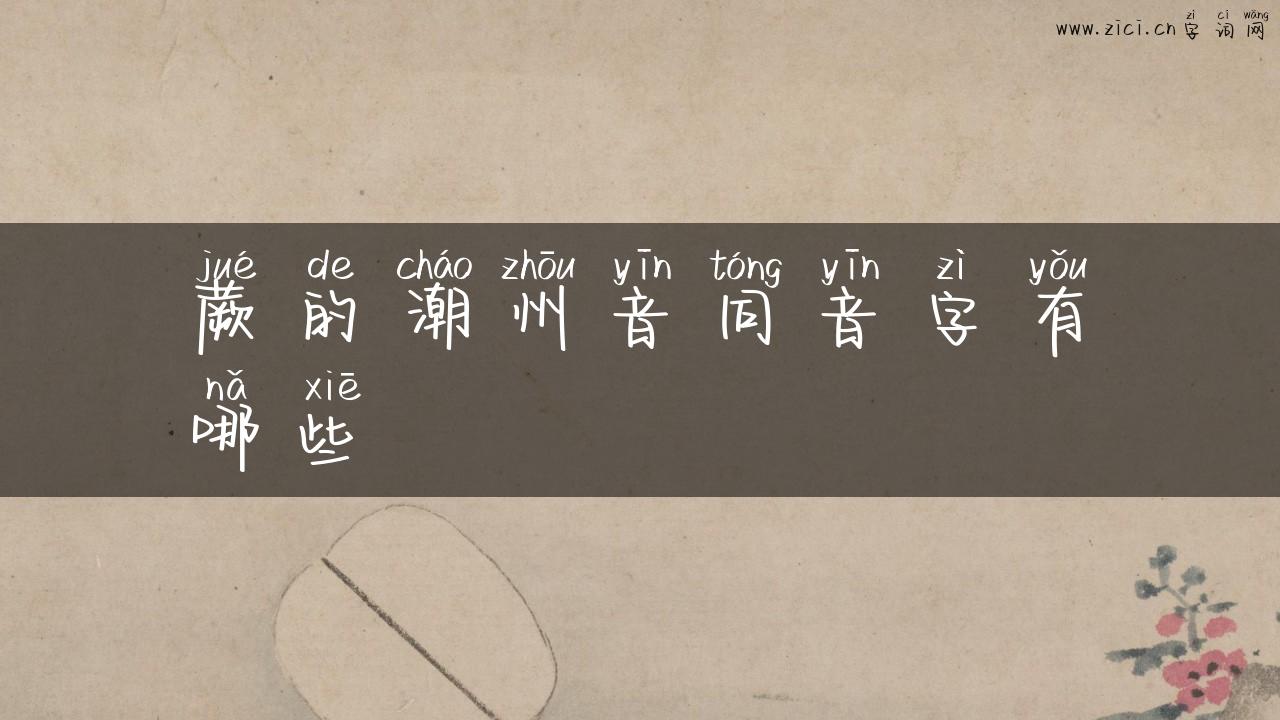 zì cí wǎng
www.zici.cn字词网
jué de cháo zhōu yīn tóng yīn zì yǒu
蕨的潮州音同音字有
nǎ xiē
哪些